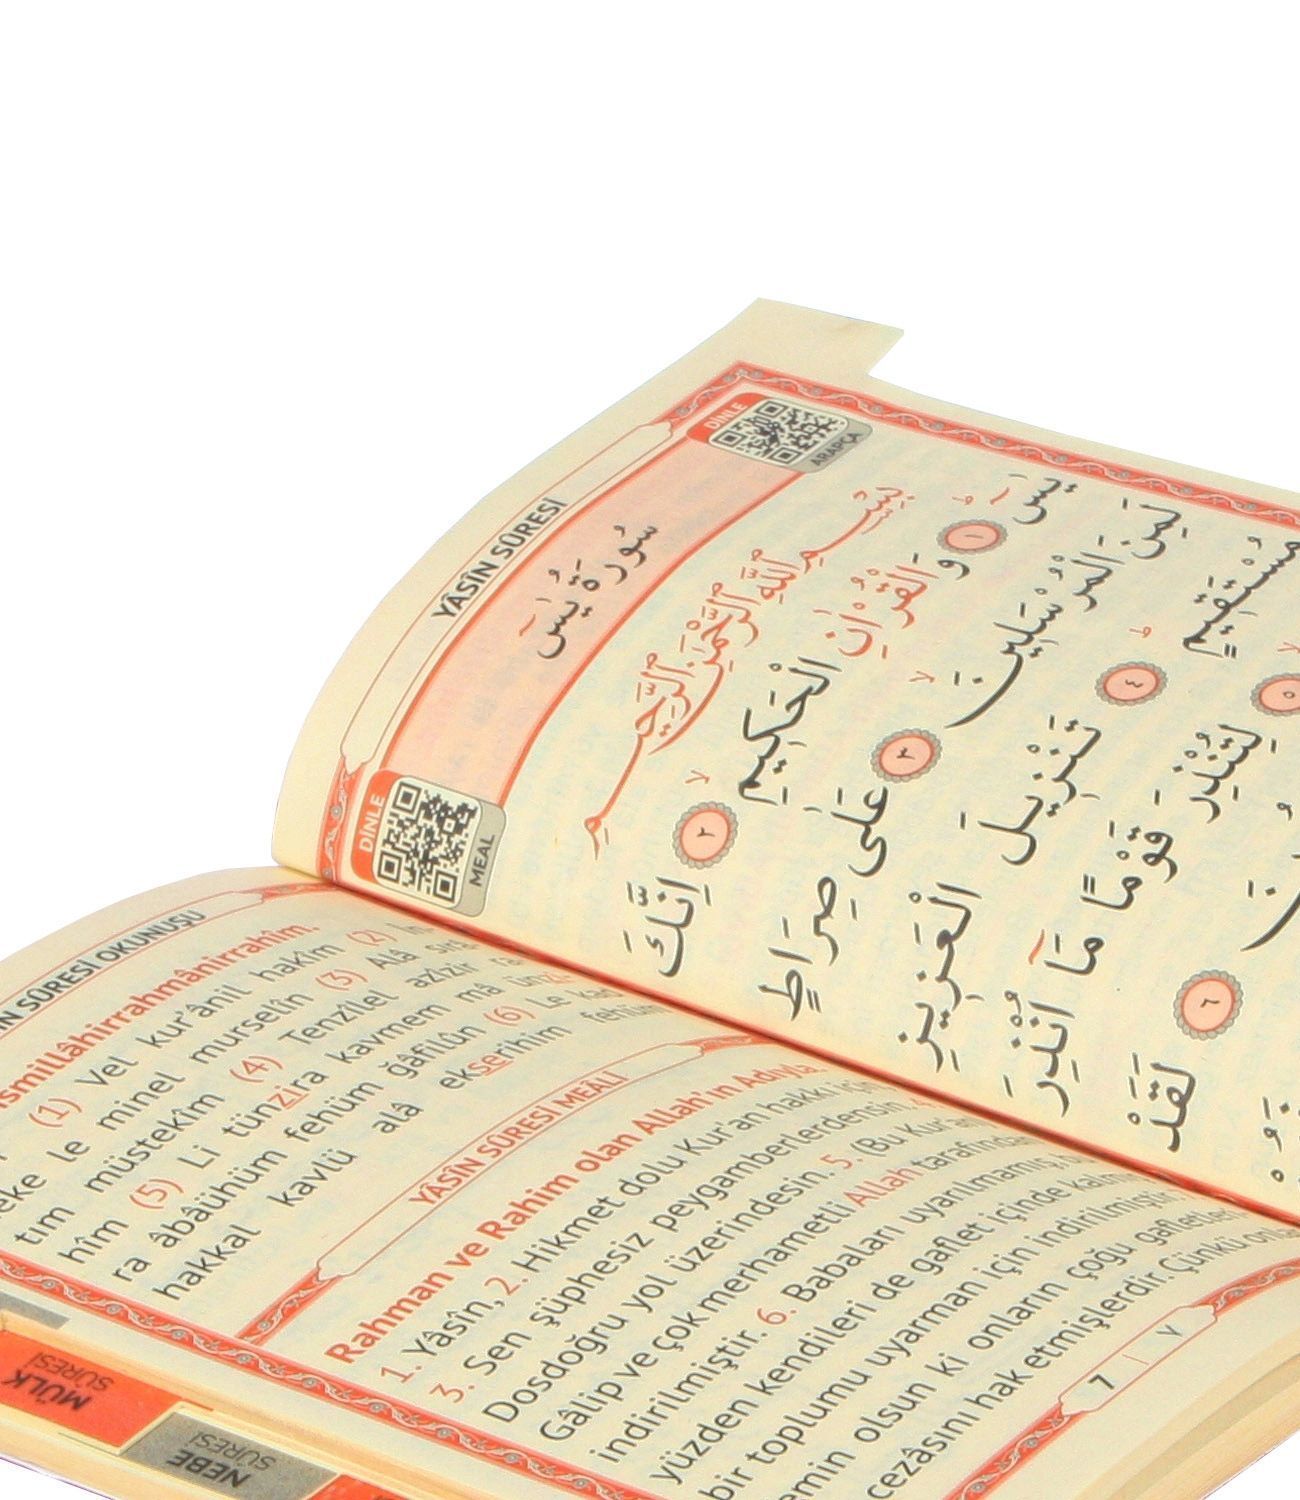 YÂSÎN SÛRESİ
DİNLE
ARAPÇA
سُورَةُ يٰسٓ
DİNLE
MEAL
بِسْمِ اللّٰهِ الرَّحْمٰنِ الرَّحِيمِ
يٰسٓ ١ وَالْقُرْاٰنِ الْحَكِيمِ ٢ اِنَّكَ
لَمِنَ الْمُرْسَلِينَ ٣ عَلٰى صِرَاطٍ
مُسْتَقِيمٍ ٤ تَنْزِيلَ الْعَزِيزِ
٥ لِتُنْذِرَ قَوْمًا مَٓا اُنْذِرَ
٦ لَقَدْ
SÛRESİ OKUNUŞU
ismillâhirrahmânirrahîm.
(1) Vel kur'ânil hakîm (2) İn
neke le minel murselîn (3) Alâ sırâ
tım müstekîm (4) Tenzîlel azîzir ra
hîm (5) Li tünzira kavmem mâ ün
ra âbâühüm fehüm ğâfilûn (6) Le kad
hakkal kavlü alâ ekserihim fehüm
YÂSÎN SÛRESİ MEÂLİ
Rahman ve Rahim olan Allah'ın Adıyla.
1. Yâsîn, 2. Hikmet dolu Kur'an hakkı için
3. Sen şüphesiz peygamberlerdensin.
Dosdoğru yol üzerindesin. 5. (Bu Kur'an
Gâlip ve çok merhametli Allah tarafından
indirilmiştir. 6. Babaları uyarılmamış,
yüzden kendileri de gaflet içinde
bir toplumu uyarman için indirilmiştir.
emin olsun ki onların çoğu gafletleri
cezâsını hak etmişlerdir. Çünkü
7 | ٧
MÜLK
SÛRESİ
NEBE
SÛRESİ